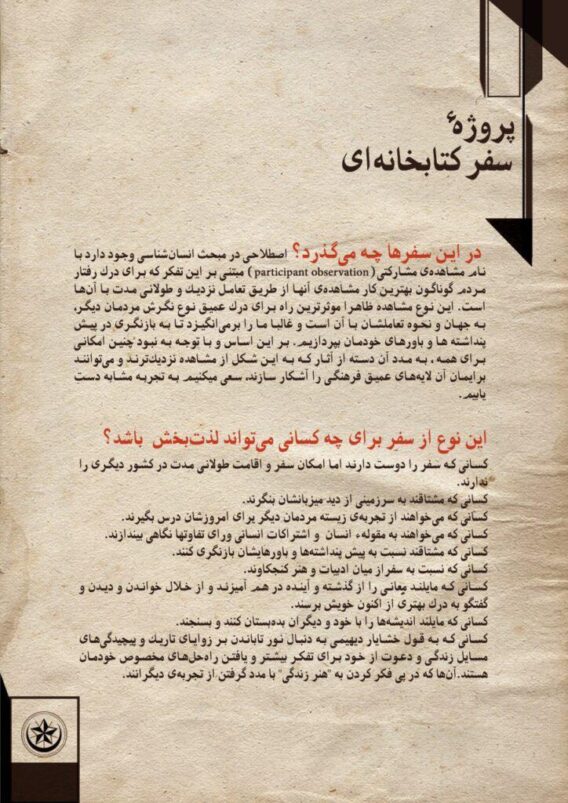 پروژهٔ
سفر کتابخانه‌ای
در این سفرها چه می‌گذرد؟ اصطلاحی در مبحث انسان‌شناسی وجود دارد با
نام مشاهده‌ی مشارکتی( participant observation ) مبتنی بر این تفکر که برای درك رفتار
مردم گوناگون بهترین کار مشاهده‌ی آنها از طریق تعامل نزدیك و طولانی مدت با آن‌ها
است. این نوع مشاهده ظاهرا موثرترین راه برای درك عمیق نوع نگرش مردمان دیگر،
به جهان و نحوه تعاملشان با آن است و غالبا ما را برمی‌انگیزد تا به بازنگری در پیش
پنداشته ها و باورهای خودمان بپردازیم. بر این اساس و با توجه به نبود چنین امکانی
برای همه، به مدد آن دسته از آثار که به این شکل از مشاهده نزدیك‌ترند و می‌توانند
برایمان آن لایه‌های عمیق فرهنگی را آشکار سازند، سعی میکنیم به تجربه مشابه دست
یابیم.
این نوع از سفر برای چه کسانی می‌تواند لذت‌بخش باشد؟
کسانی که سفر را دوست دارند اما امکان سفر و اقامت طولانی مدت در کشور دیگری را
ندارند.
کسانی که مشتاقند به سرزمینی از دید میزبانشان بنگرند.
کسانی که می‌خواهند از تجربه‌ی زیسته مردمان دیگر برای امروزشان درس بگیرند.
کسانی که می‌خواهند به مقولهء انسان و اشتراکات انسانی ورای تفاوتها نگاهی بیندازند.
کسانی که مشتاقند نسبت به پیش پنداشته‌ها و باورهایشان بازنگری کنند.
کسانی که نسبت به سفراز میان ادبیات و هنر کنجکاوند.
کسانی که مایلند معانی را از گذشته و آینده در هم آمیزند و از خلال خواندن و دیدن و
گفتگو به درك بهتری از اکنون خویش برسند.
کسانی که مایلند اندیشه‌ها را با خود و دیگران بده‌بستان کنند و بسنجند.
کسانی که به قول خشایار دیهیمی به دنبال نور تاباندن بر زوایای تاریك و پیچیدگی‌های
مسایل زندگی و دعوت از خود برای تفکر بیشتر و یافتن راه‌حل‌های مخصوص خودمان
هستند.آن‌ها که در پی فکر کردن به "هنر زندگی" با مدد گرفتن از تجربه‌ی دیگرانند.